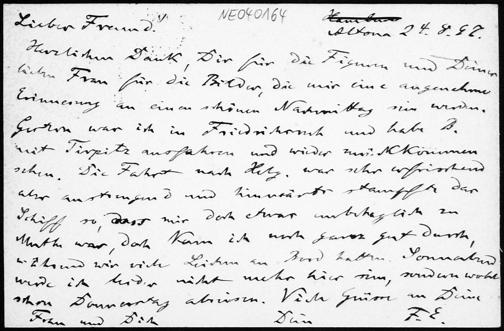 Lieber Freund! NE040164 Hamburg
Altona 24.8.97.
Herzlichen Dank, Dir für die Figuren und Deiner
lieben Frau für die Bilder, die mir eine angenehme
Erinnerung an einen schönen Nachmittag sein werden.
Gestern war ich in Friedrichsruh und habe B.
mit Tirpitz ausfahren und wieder zurückkommen
sehen. Die Fahrt nach Helg. war sehr erfrischend
aber anstrengend und hinwärts stampfte das
Schiff so, dass mir doch etwas unbehaglich zu
Muthe war, doch kam ich noch ganz gut durch,
während wir viele Leichen an Bord hatten. Sonnabend
werde ich leider nicht mehr hier sein, sondern wohl
schon Donnerstag abreisen. Viele Grüsse an Deine
Frau und Dich Dein F.E.